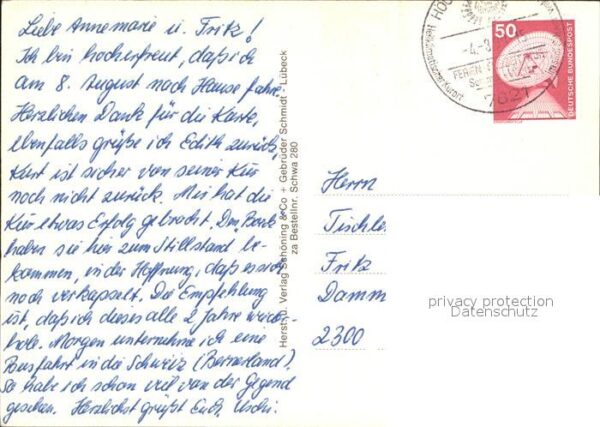 Liebe Annemarie u. Fritz!
Ich bin hocherfreut, daß ich
am 8. August nach Hause fahre.
Herzlichen Dank für die Karte,
ebenfalls grüße ich Edith zurück,
Kurt ist sicher von seiner Kur
noch nicht zurück. Mir hat die
Kur etwas Erfolg gebracht. Den
haben sie hier zum Stillstand be-
kommen, in der Hoffnung, daß es sich
noch verkapselt. Die Empfehlung
ist, daß ich dieses alle 2 Jahre wieder-
hole. Morgen unternehme ich eine
Busfahrt in die Schweiz (Bernerland).
So habe ich schon viel von der Gegend
gesehen. Herzlichst grüßt Euch, Uschi.
Herst. u. Verlag Schöning & Co + Gebrüder Schmidt - Lübeck
za Bestellnr. Schwa 280
50
DEUTSCHE BUNDESPOST
7821
Herrn
Tischle
Fritz
Damm
2300
privacy protection
Datenschutz